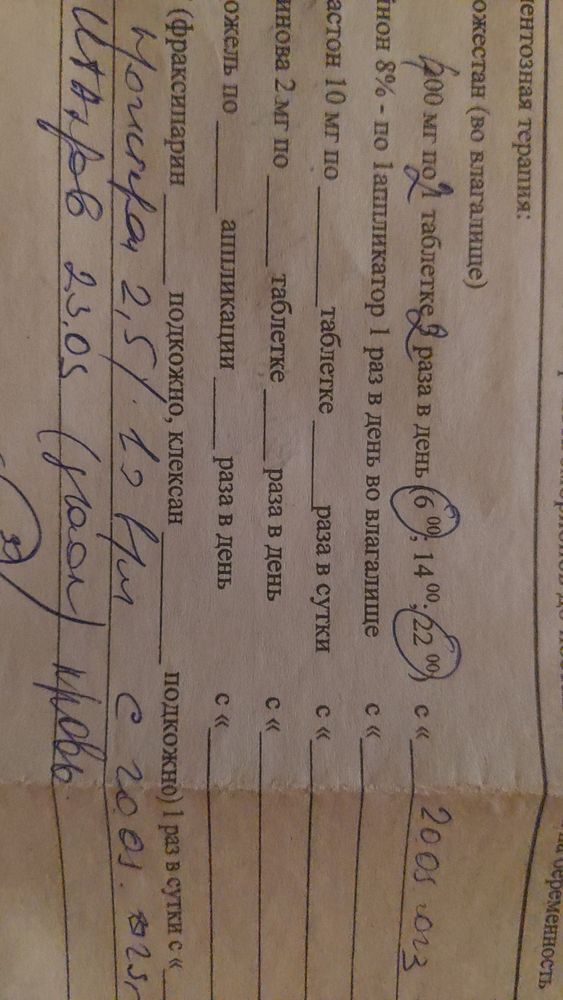 на беременность
ентозная терапия:
ожестан (во влагалище)
00 мг по 2 таблетке 2 раза в день (6 00, 14 00, 22 00) с « 20 05
нон 8% - по 1аппликатор 1 раз в день во влагалище с «
астон 10 мг по таблетке раза в сутки с «
инова 2 мг по таблетке раза в день с «
ожель по аппликации раза в день с «
(фраксипарин подкожно, клексан подкожно) 1 раз в сутки с «
2,5% в/м с 20.05.
23.05 кровь